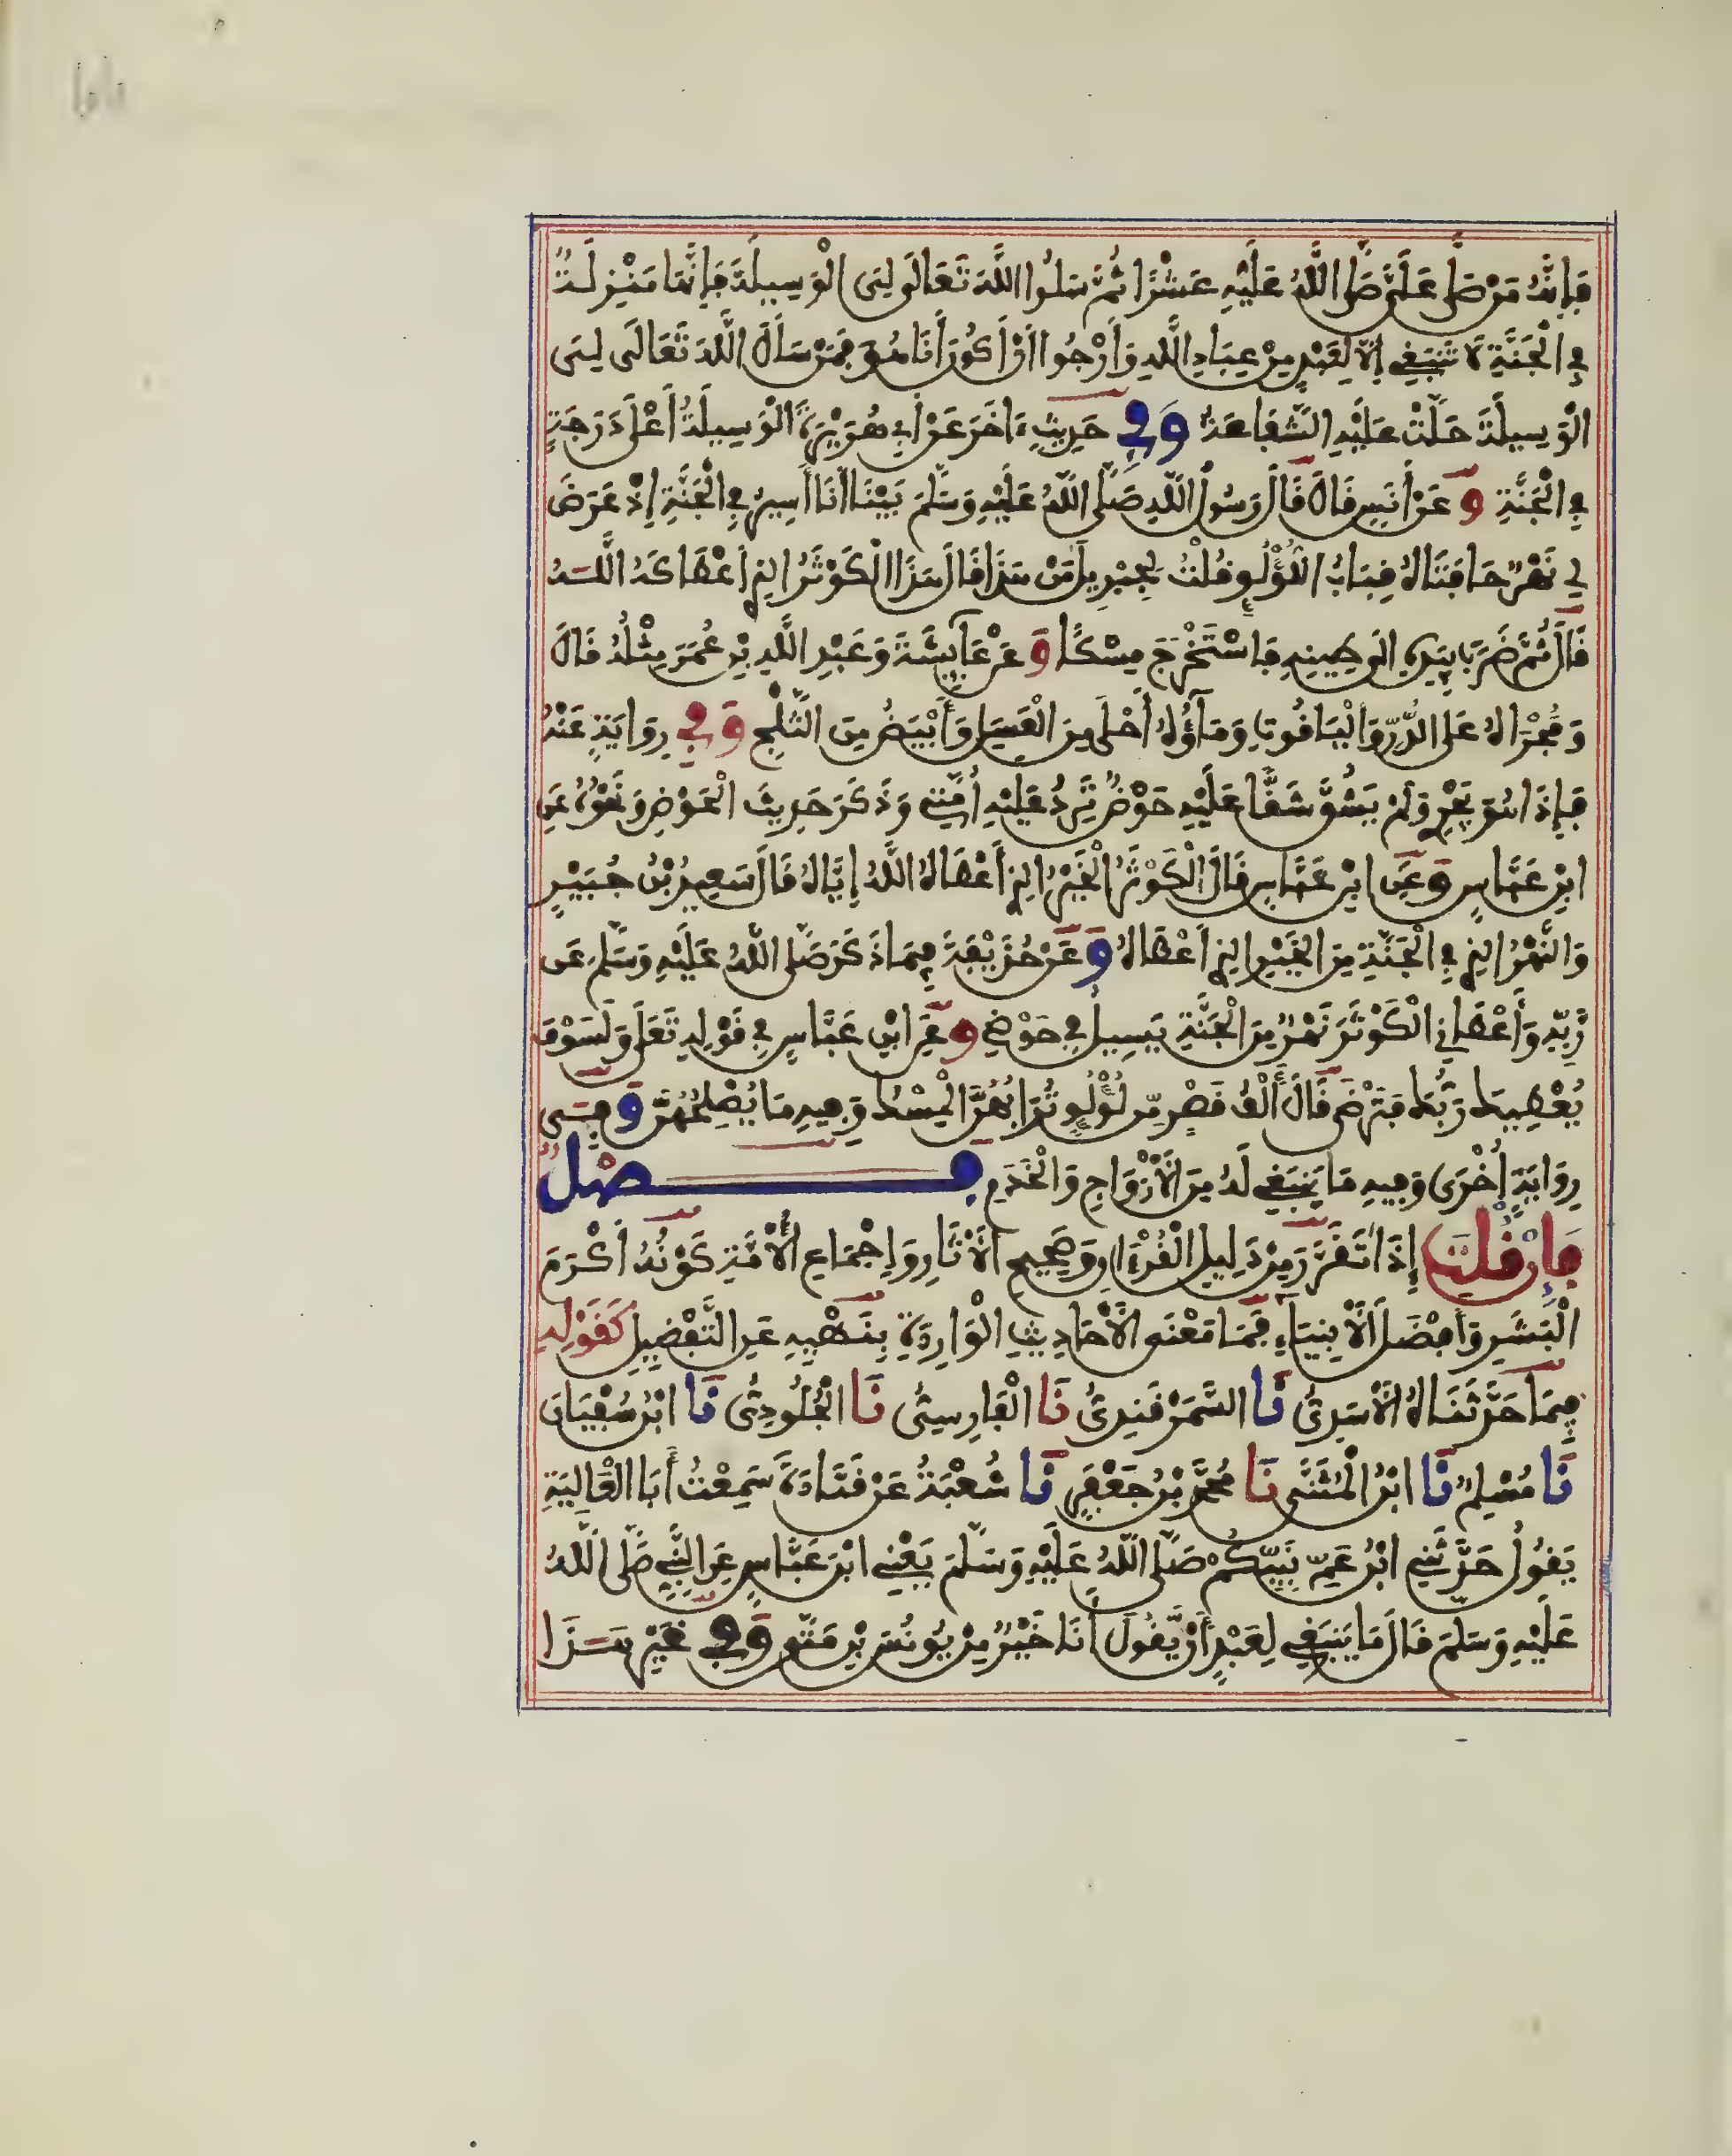 فَإِنَّهُ مَنْ صَلَّى عَلَيَّ صَلَّى اللَّهُ عَلَيْهِ عَشْرًا ثُمَّ سَلُوا اللَّهَ تَعَالَى لِيَ الْوَسِيلَةَ فَإِنَّهَا مَنْزِلَةٌ
فِي الْجَنَّةِ لَا تَنْبَغِي إِلَّا لِعَبْدٍ مِنْ عِبَادِ اللَّهِ وَأَرْجُوا أَنْ أَكُونَ أَنَا هُوَ فَمَنْ سَأَلَ اللَّهَ تَعَالَى لِيَ
الْوَسِيلَةَ حَلَّتْ عَلَيْهِ الشَّفَاعَةُ وَفِي حَدِيثٍ ءَاخَرَ عَنْ أَبِي هُرَيْرَةَ الْوَسِيلَةُ أَعْلَى دَرَجَةٍ
فِي الْجَنَّةِ وَعَنْ أَنَسٍ قَالَ قَالَ رَسُولُ اللَّهِ صَلَّى اللَّهُ عَلَيْهِ وَسَلَّمَ بَيْنَا أَنَا أَسِيرُ فِي الْجَنَّةِ إِذْ عَرَضَ
لِي نَهْرٌ حَافَتَاهُ قِبَابُ اللُّؤْلُؤِ قُلْتُ لِجِبْرِيلَ مَنْ هَذَا قَالَ هَذَا الْكَوْثَرُ الذِي أَعْطَاكَهُ اللَّهُ
قَالَ ثُمَّ ضَرَبَ بِيَدِهِ إِلَى طِينِهِ فَاسْتَخْرَجَ مِسْكًا وَعَنْ عَائِشَةَ وَعَبْدِ اللَّهِ بْنِ عُمَرَ مِثْلُهُ قَالَ
وَمَجْرَاهُ عَلَى الدُّرِّ وَالْيَاقُوتِ وَمَاؤُهُ أَحْلَى مِنَ الْعَسَلِ وَأَبْيَضُ مِنَ الثَّلْجِ وَفِي رِوَايَةٍ عَنْهُ
فَإِذَا هُوَ يَجْرِي وَلَمْ يَشُقَّ شَقًّا عَلَيْهِ حَوْضٌ تَرِدُ عَلَيْهِ أُمَّتِي وَذَكَرَ حَدِيثَ الْحَوْضِ وَنَحْوُهُ عَنِ
ابْنِ عَبَّاسٍ وَعَنِ ابْنِ عَبَّاسٍ قَالَ الْكَوْثَرُ الْخَيْرُ الذِي أَعْطَاهُ اللَّهُ إِيَّاهُ قَالَ سَعِيدُ بْنُ جُبَيْرٍ
وَالنَّهْرُ الذِي فِي الْجَنَّةِ مِنَ الْخَيْرِ الذِي أَعْطَاهُ وَعَنْ حُذَيْفَةَ فِيمَا ذَكَرَ صَلَّى اللَّهُ عَلَيْهِ وَسَلَّمَ عَن
رَّبِّهِ وَأَعْطَانِي الْكَوْثَرَ نَهْرٌ مِنَ الْجَنَّةِ يَسِيلُ فِي حَوْضِي وَعَنِ ابْنِ عَبَّاسٍ فِي قَوْلِهِ تَعَلَى وَلَسَوْفَ
يُعْطِيكَ رَبُّكَ فَتَرْضَى قَالَ أَلْفُ قَصْرٍ مِّن لُؤْلُؤٍ تُرَابُهُنَّ الْمِسْكُ وَفِيهِ مَا يُصْلِحُهُنَّ وَفِي
رِوَايَةٍ أُخْرَى وَفِيهِ مَا يَنْبَغِي لَهُ مِنَ الْأَزْوَاجِ وَالْخَدَمِ فَصْلٌ
فَإِنْ قُلْتَ إِذَا تَقَرَّرَ مِنْ دَلِيلِ الْقُرْءَانِ وَصَحِيحِ الْأَثَارِ وَإِجْمَاعِ الْأُمَّةِ كَوْنُهُ أَكْرَمَ
الْبَشَرِ وَأَفْضَلَ الْأَنْبِيَاءِ فَمَا مَعْنَى الْأَحَادِيثِ الْوَارِدَةِ بِنَهْيِهِ عَنِ التَّفْضِيلِ كَقَوْلِهِ
فِيمَا حَدَّثَنَاهُ الْأَسَدِيُّ نَا السَّمَرْقَنْدِيُّ نَا الْفَارِسِيُّ نَا الْجُلُودِيُّ نَا ابْنُ سُفْيَانَ
نَا مُسْلِمٌ نَا ابْنُ الْمُثَنَّى نَا مُحَمَّدُ بْنُ جَعْفَرٍ نَا شُعْبَةُ عَنْ قَتَادَةَ سَمِعْتُ أَبَا الْعَالِيَةِ
يَقُولُ حَدَّثَنِي ابْنُ عَمِّ نَبِيِّكُمْ صَلَّى اللَّهُ عَلَيْهِ وَسَلَّمَ يَعْنِي ابْنَ عَبَّاسٍ عَنِ النَّبِيِّ صَلَّى اللَّهُ
عَلَيْهِ وَسَلَّمَ قَالَ مَا يَنْبَغِي لِعَبْدٍ أَنْ يَّقُولَ أَنَا خَيْرٌ مِنْ يُونُسَ بْنِ مَتَّى وَفِي غَيْرِ هَذَا